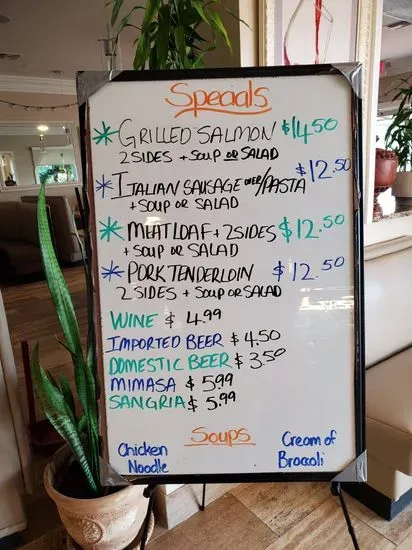 Specials
* GRILLED SALMON $14.50
2 SIDES + SOUP OR SALAD
* ITALIAN SAUSAGE OVER/PASTA $12.50
+ SOUP OR SALAD
* MEATLOAF + 2 SIDES $12.50
+ SOUP OR SALAD
* PORK TENDERLOIN $12.50
2 SIDES + SOUP OR SALAD
WINE $4.99
IMPORTED BEER $4.50
DOMESTIC BEER $3.50
MIMASA $5.99
SANGRIA $5.99
Soups
Chicken Noodle
Cream of Broccoli